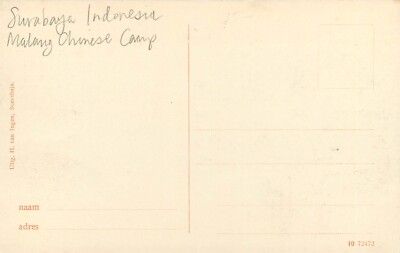 Surabaya Indonesia
Malang Chinese Camp
Uitg. H. van Ingen, Soerabaja.
naam
adres
10 72172